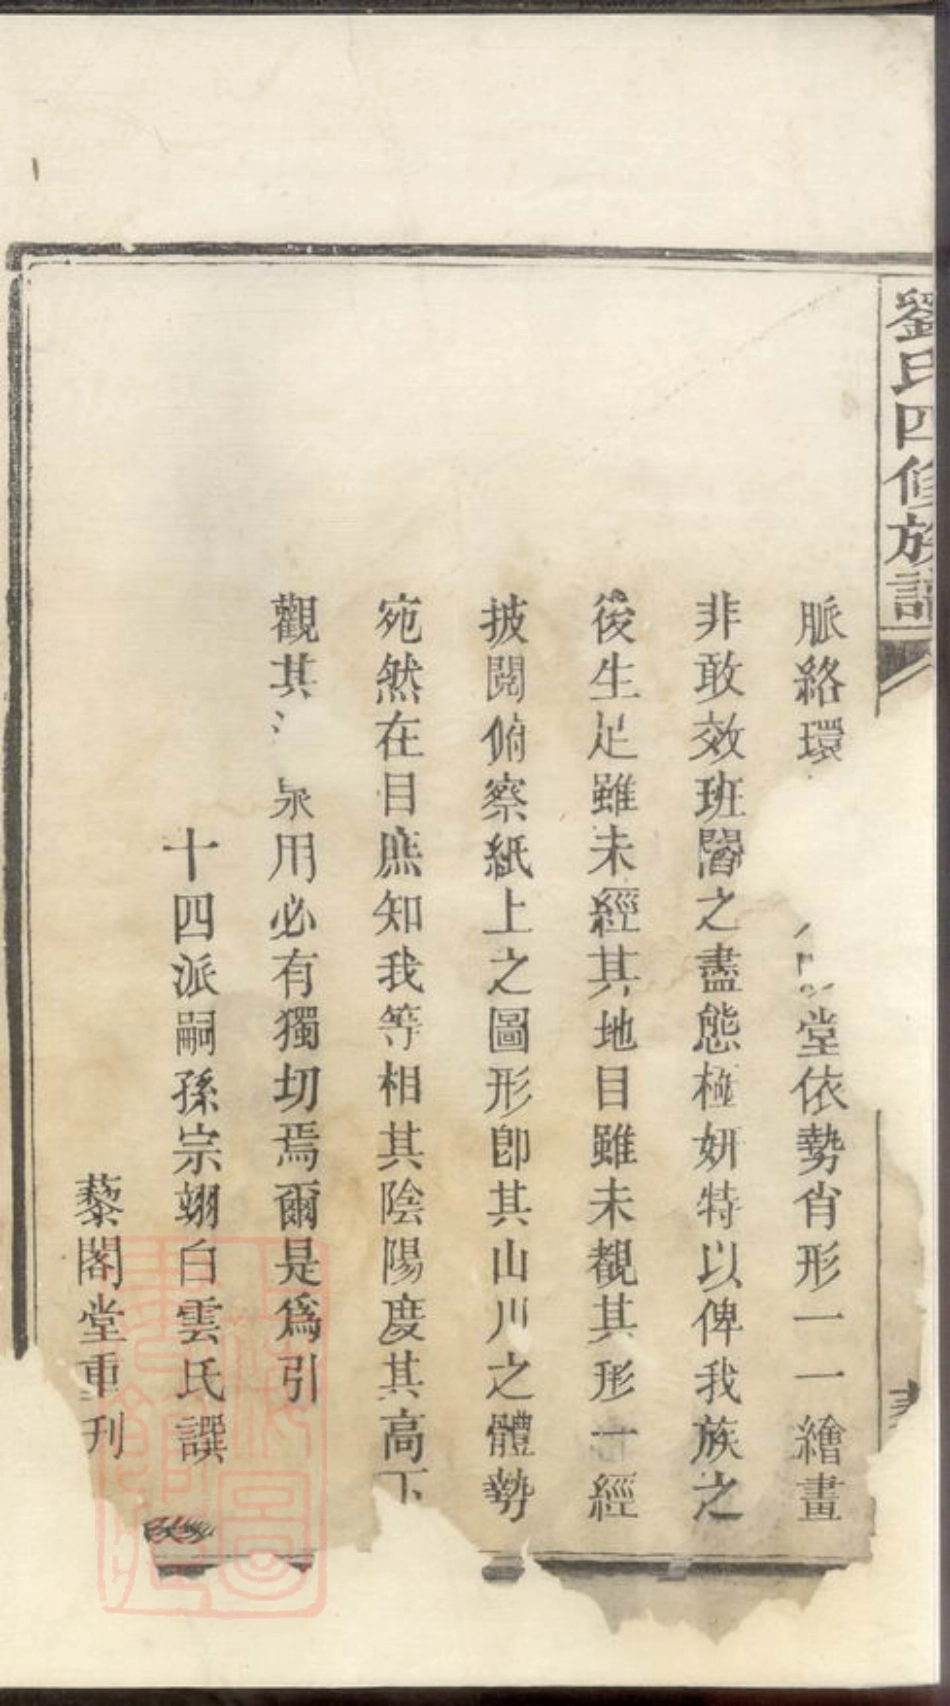 劉氏四修族譜
脈絡環堂依勢肖形一一繪畫
非敢效班閻之盡態極妍特以俾我族之
後生足雖未經其地目雖未覩其形一經
披閱俯察紙上之圖形卽其山川之體勢
宛然在目庶知我等相其陰陽度其高下
觀其泉用必有獨切焉爾是爲引
十四派嗣孫宗翊白雲氏譔
藜閣堂重刊